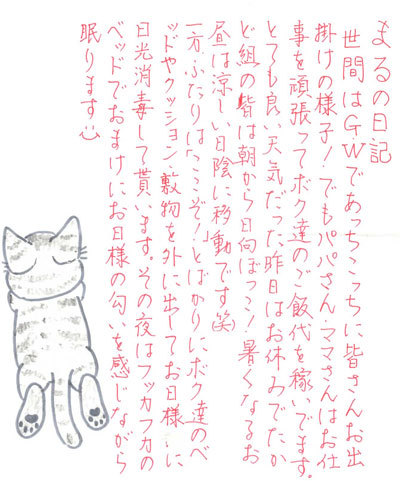 まるの日記
世間はGWであっちこっちに皆さんお出
掛けの様子!でもパパさんママさんはお仕
事を頑張ってボク達のご飯代を稼いでます。
とても良い天気だった昨日はお休みでたか
ど組の皆は朝から日向ぼっこ!暑くなるお
昼は涼しい日陰に移動です(笑)
一方、ふたりは「ここぞ!」とばかりにボク達のベ
ッドやクッション、敷物を外に出してお日様…に
日光消毒して貰います。その夜はフッカフカの
ベッドでおまけにお日様の匂いを感じながら
眠ります